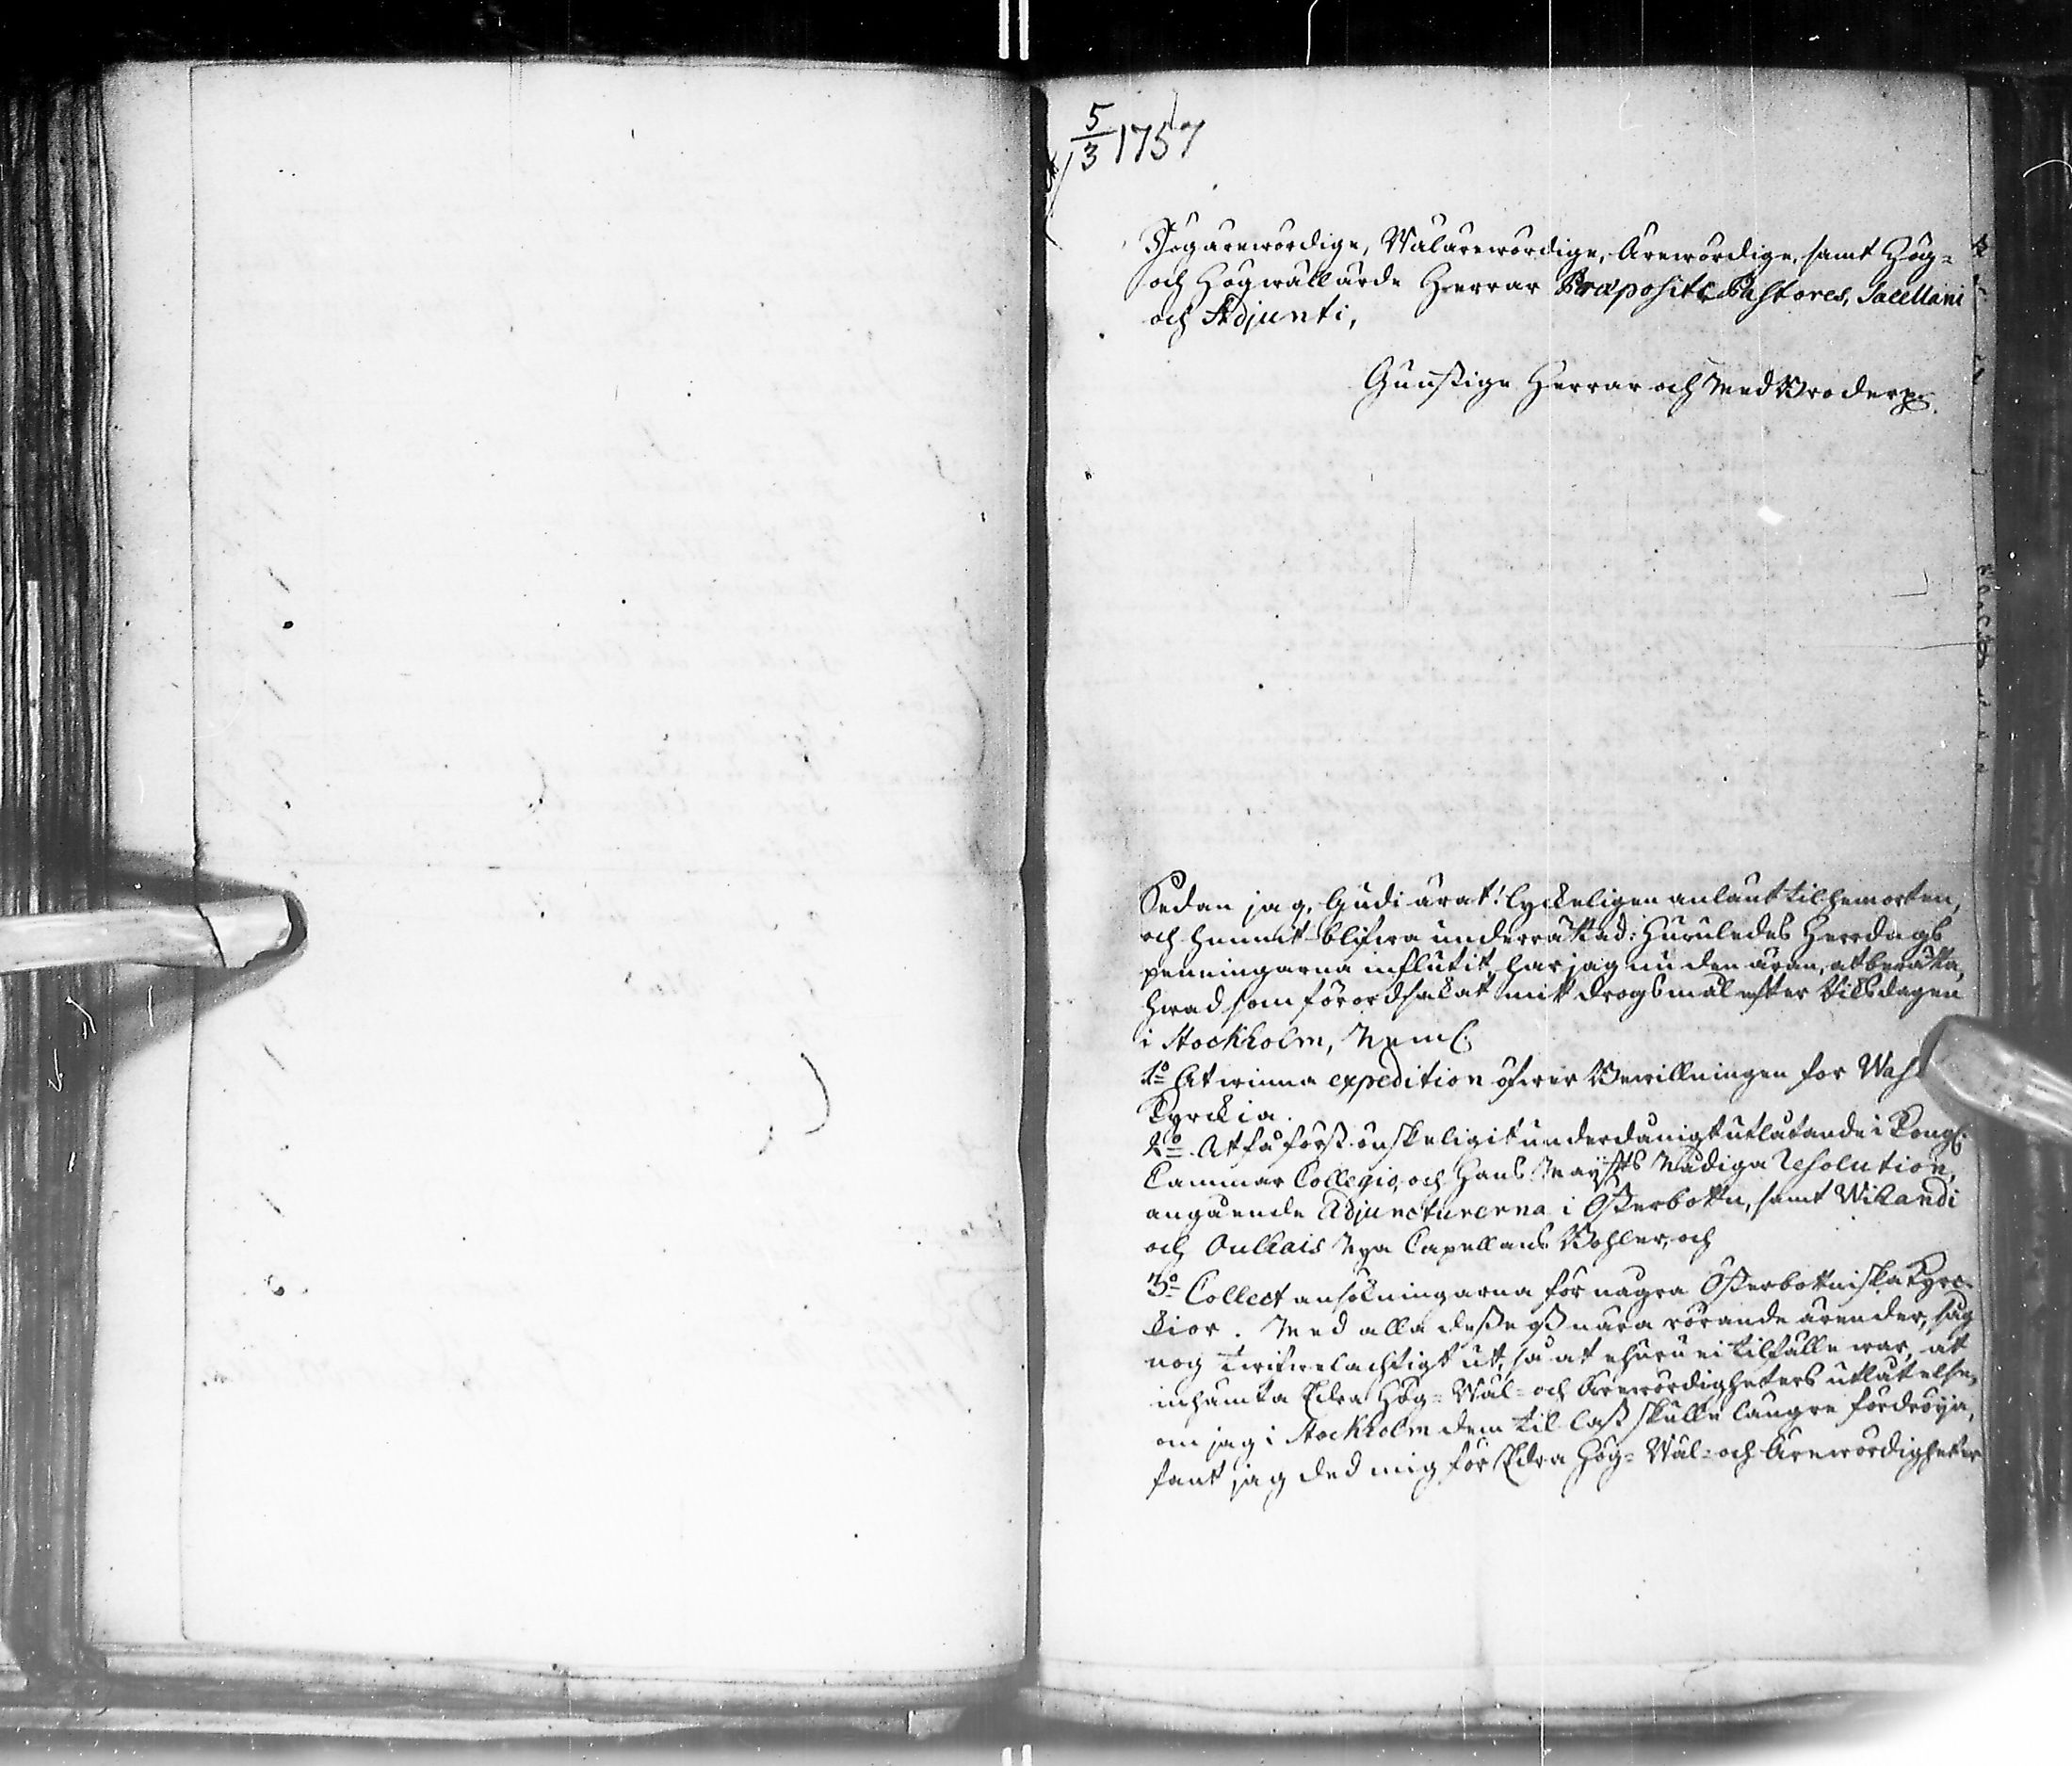 5/3 1757
Högärewördige, Wälärewördige, Ärewördige, samt Hög-
och Högwällärde Herrar Præpositi, Pastores, Sacellani
och Adjuncti,
Gunstige Herrar och MedBröder
Sedan jag, Gudi ärat! lyckeligen anländt til hemorten,
och hunnit blifwa underrättad: Huruledes Herredags
penningarna influtit, har jag nu den äran, at berätta,
hwad som förordsakat mitt drögsmål efter Riksdagen
i Stockholm, Neml.
1:o At winna expedition öfwer Bewillningen för Wasa
Kyrckia.
2:o At få först önskeligit underdånigt utlåtande i Kongl.
Cammar Collegio, och Hans Maij:tts Nådiga Resolution,
angående Adjuncturerna i Österbottn, samt Wikandi
och Oulais Nya Capellans Bohler, och
3:o Collect ansökningarna för några Österbottniska Kyrc-
kior. Med alla desse oss nära rörande ärender, såg
nog twifwelachtigt ut, så at ehuru ei tilfälle war, at
inhämta Edra Hög- Wäl- och Ärewördigheters utlåtelse,
om jag i Stockholm dem til last skulle längre fördröija,
fant jag ded mig för Edra Hög- Wäl- och Ärewördigheter